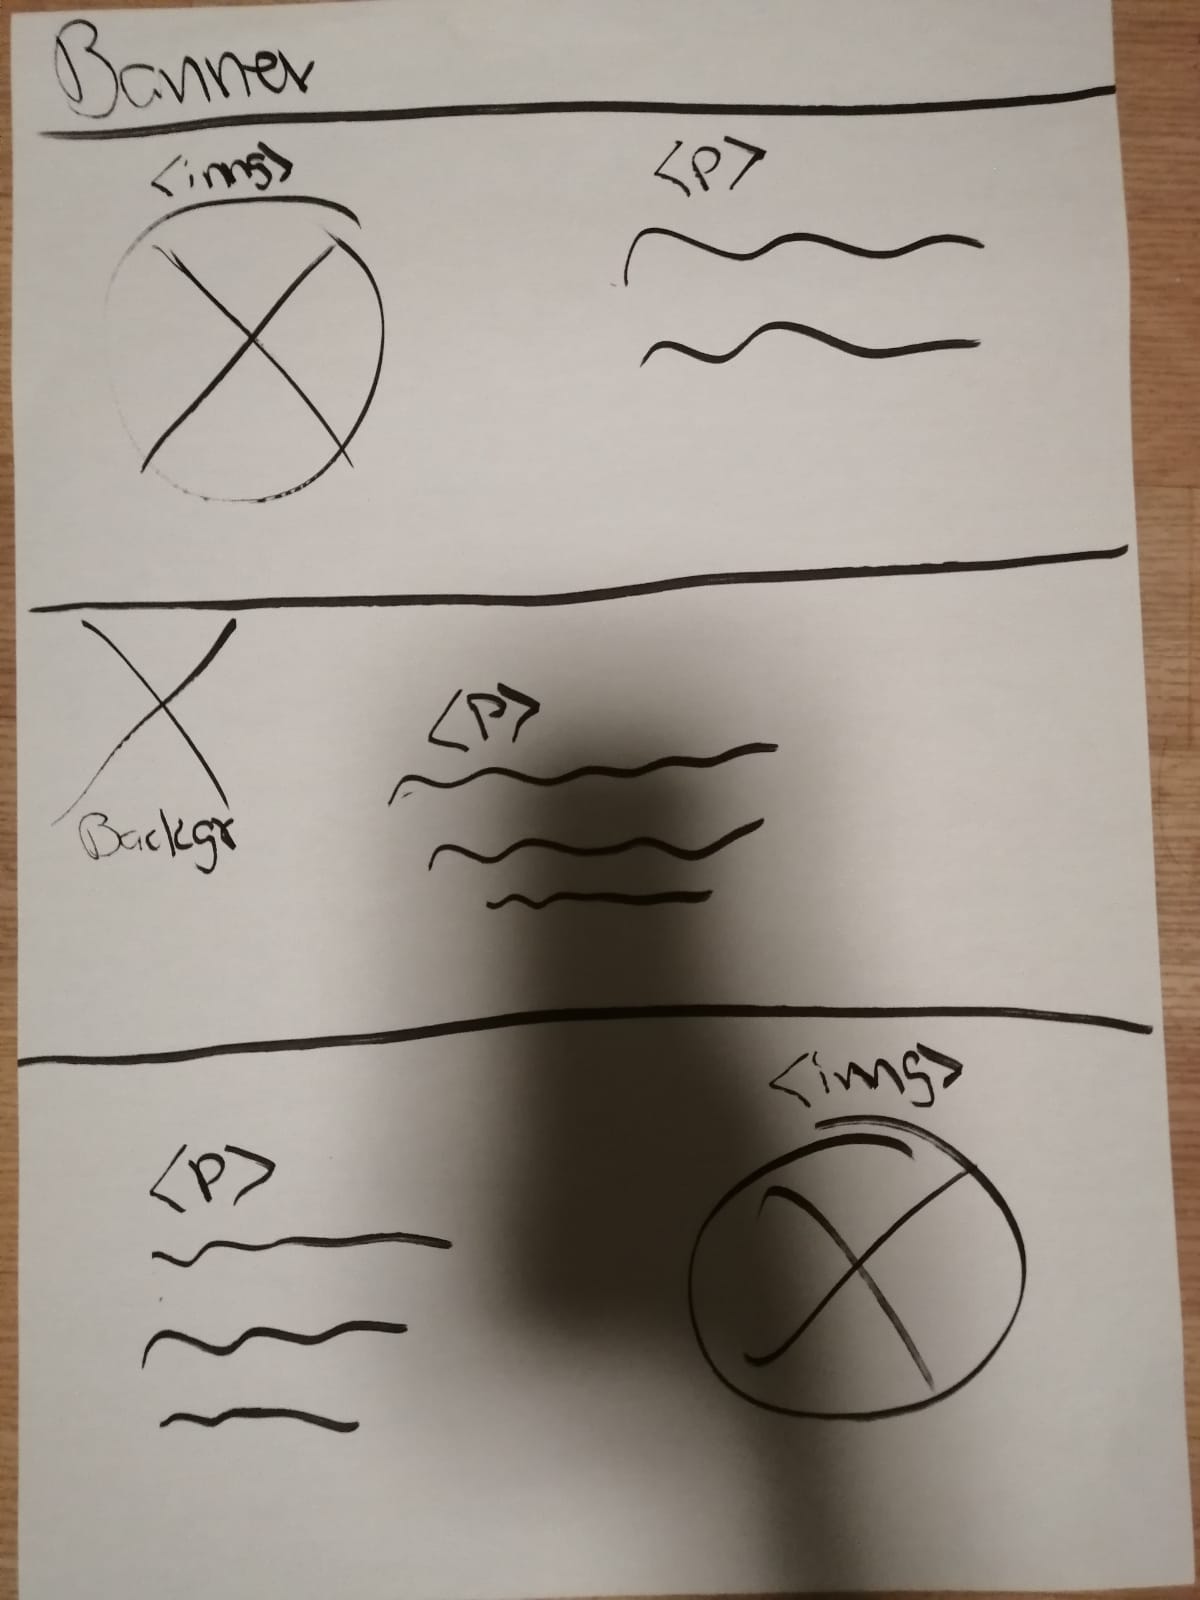 Banner
<img>
<p>
<p>
Backgr
<img>
<p>